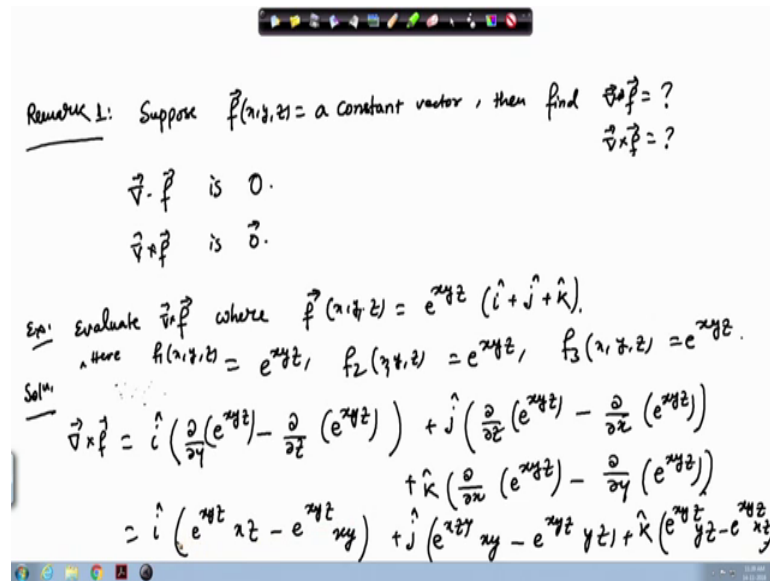 Remark 1: Suppose f⃗(x,y,z) = a constant vector, then find ∇⃗·f⃗ = ?
∇⃗×f⃗ = ?
∇⃗·f⃗ is 0.
∇⃗×f⃗ is 0⃗.
Exp: Evaluate ∇⃗×f⃗ where f⃗(x,y,z) = e^{xyz} (î+ĵ+k̂).
Soln. Here f₁(x,y,z) = e^{xyz}, f₂(x,y,z) = e^{xyz}, f₃(x,y,z) = e^{xyz}.
∇⃗×f⃗ = î(∂/∂y(e^{xyz}) − ∂/∂z(e^{xyz})) + ĵ(∂/∂z(e^{xyz}) − ∂/∂x(e^{xyz}))
+ k̂(∂/∂x(e^{xyz}) − ∂/∂y(e^{xyz}))
= î(e^{xyz} xz − e^{xyz} xy) + ĵ(e^{xzy} xy − e^{xyz} yz) + k̂(e^{xyz} yz − e^{xyz} xz)